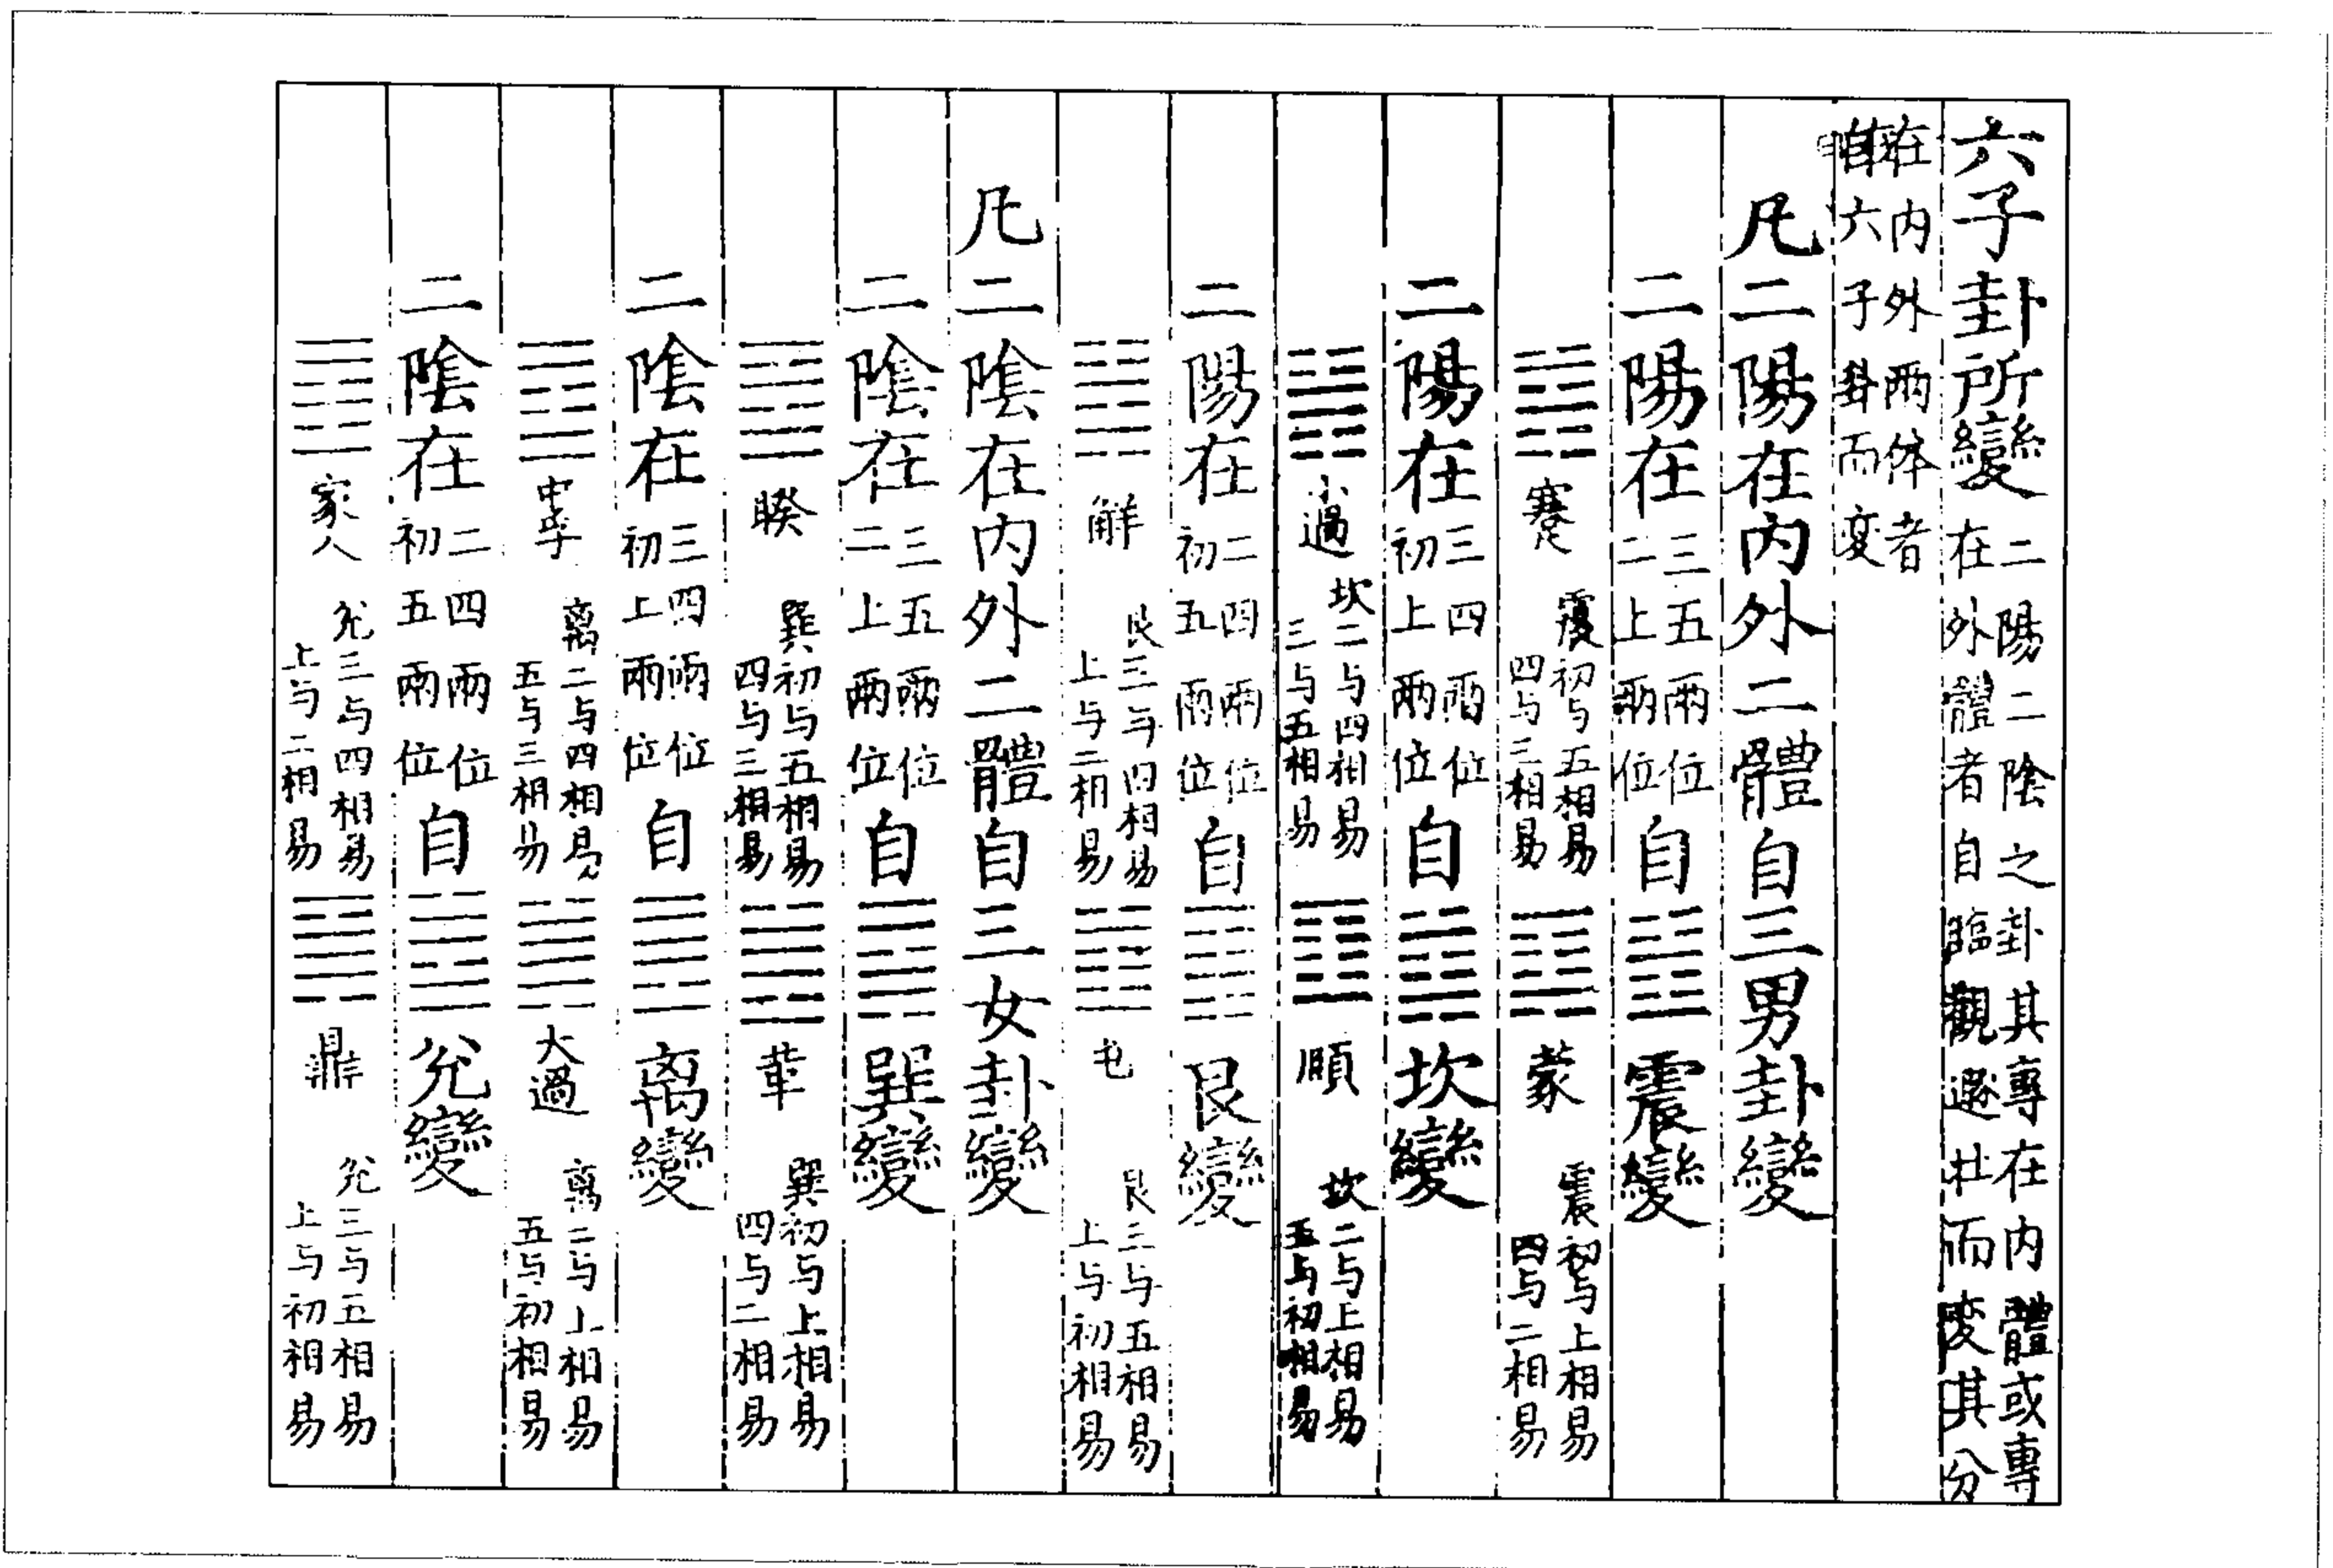 六子卦所變 二陽二陰之卦其專在内體或專在外體者自臨觀遯壯而变其分
在内外两体者自六子卦而变
凡二陽在内外二體自三男卦變
二陽在三五兩位二上兩位自䷲震變
䷦蹇 震初与五相易四与三相易 ䷃蒙 震初与上相易四与二相易
二陽在三四兩位初上兩位自䷜坎變
䷽小過 坎二与四相易三与五相易 ䷚頤 坎二与上相易五与初相易
二陽在二四兩位初五兩位自䷳艮變
䷧解 艮三与四相易上与二相易 ䷂屯 艮三与五相易上与初相易
凡二陰在内外二體自三女卦變
二陰在三五兩位二上兩位自䷸巽變
䷥睽 巽初与五相易四与三相易 ䷰革 巽初与上相易四与二相易
二陰在三四兩位初上兩位自䷝离變
䷼中孚 离二与四相易五与三相易 ䷛大過 离二与上相易五与初相易
二陰在二四兩位初五兩位自䷹兊變
䷤家人 兊三与四相易上与二相易 ䷱鼎 兊三与五相易上与初相易